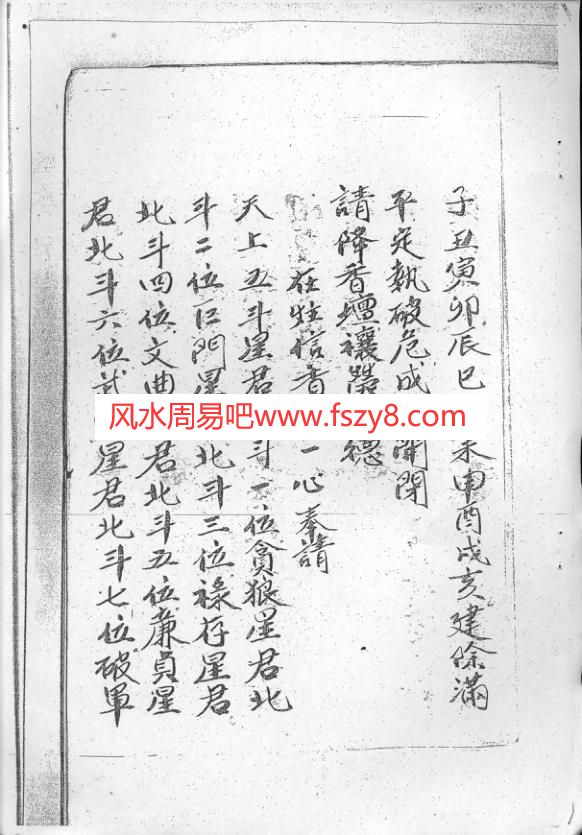 子丑寅卯辰巳未申酉戌亥建除滿
平定執破危成開閉
請降香壇禳德
在信者一心奉請
天上五斗星君斗一位貪狼星君北
斗二位巨門星北斗三位祿存星君
北斗四位文曲君北斗五位廉貞星
君北斗六位武星君北斗七位破軍
风水周易吧www.fszy8.com